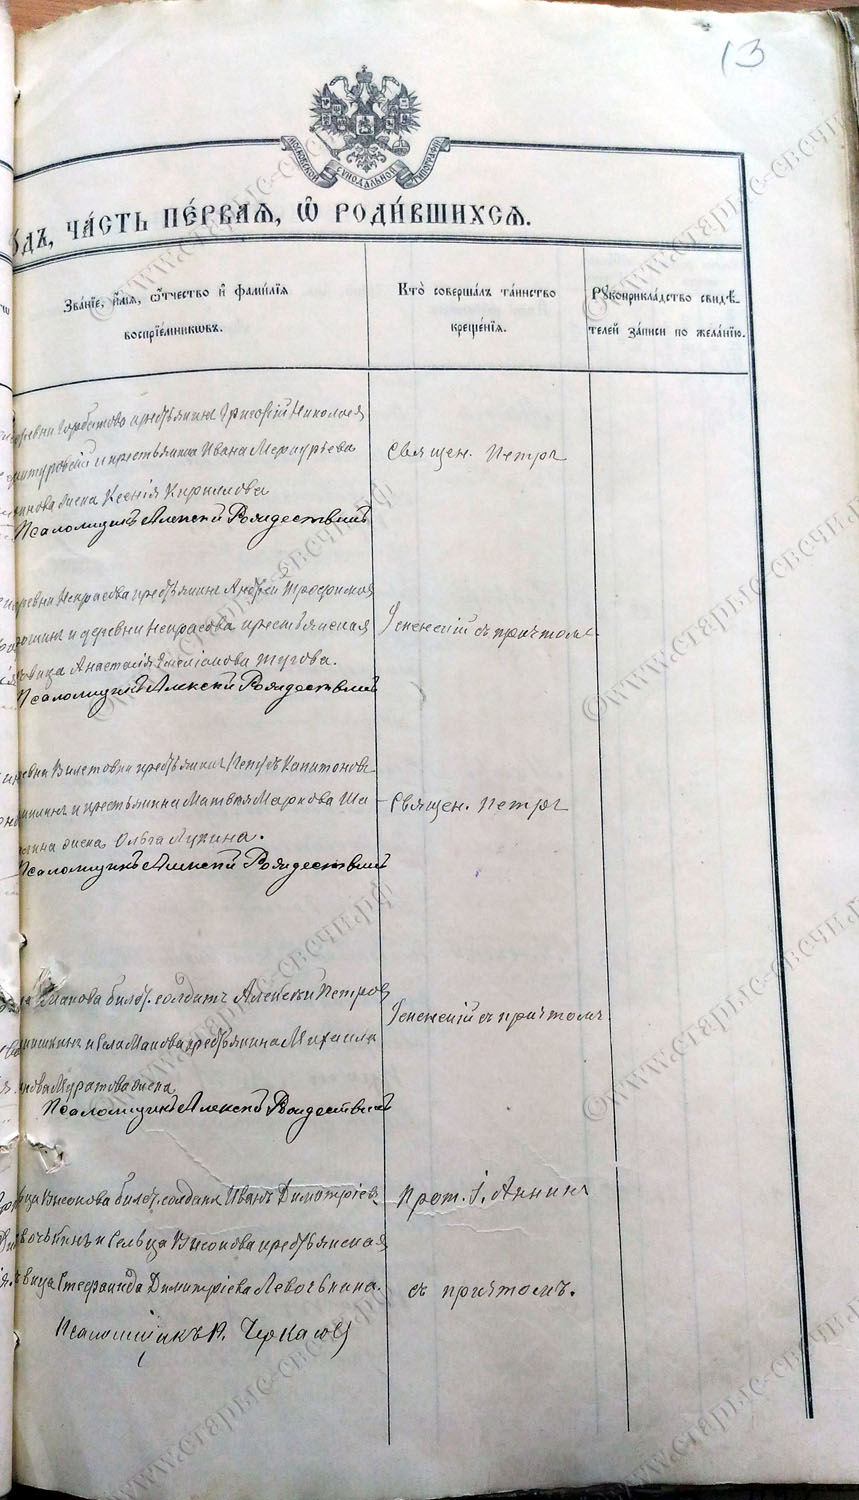 13
МОСКОВСКОЙ СѴНОДАЛЬНОЙ ТИПОГРАФІИ
ЧА́СТЬ ПЕ́РВАѦ, Ѡ҆ РОДИ́ВШИХСѦ.
Зва́нїе, и҆́мѧ, ѻ҆́тчество и҆ фами́лїѧ
воспрїе́мникѡвъ.
Кто̀ соверша́лъ та́инство
креще́нїѧ.
Рꙋкоприкла́дство свидѣ́-
телей за́писи по жела́нїю.
деревни Горбатово крестьянинъ Григорій Николаев
и крестьянина Ивана Меркурьева
жена Ксенія Кириллова
Псаломщикъ Алексѣй Рождествинъ
Священ. Петръ
деревни Некрасова крестьянинъ Андрей Трофимов
и деревни Некрасова крестьянская
Анастасія Емеліанова Тугова.
Псаломщикъ Алексѣй Рождествинъ
Успенскій съ причтомъ
крестьянинъ Петръ Капитоновъ
и крестьянина Матвѣя Маркова Ша-
жена Ольга Лукина.
Псаломщикъ Алексѣй Рождествинъ
Священ. Петръ
Макова билет. солдатъ Алексѣй Петров
и села Макова крестьянина Михаила
Муратова жена
Псаломщикъ Алексѣй Рождествинъ
Успенскій съ причтомъ
Высокова билет. солдат Иванъ Димитріев
и сельца Высокова крестьянская
Стефанида Димитріева Левочкина.
Псаломщикъ Н. Черкасов
Прот. І. Аннинъ
съ причтомъ.
©www.старые-свечи.рф